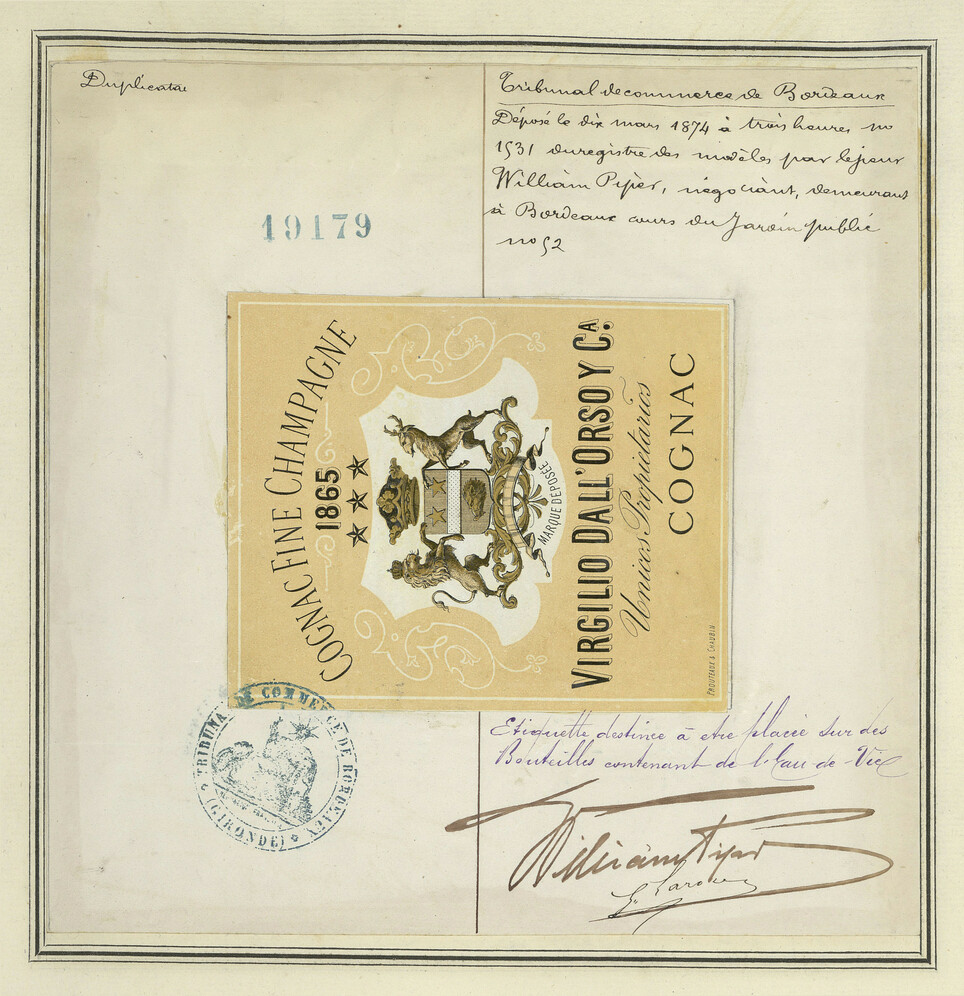 Duplicata
19179
Tribunal de commerce de Bordeaux
Déposé le dix mars 1874 à trois heures no
1531 du registre des modèles par le sieur
William Piper, négociant, demeurant
à Bordeaux cours du Jardin public
no 52
COGNAC FINE CHAMPAGNE
1865
MARQUE DEPOSÉE
VIRGILIO DALL'ORSO Y CA.
Unicos Propietarios
COGNAC
PROUTEAUX & CHAUBIN
TRIBUNAL DE COMMERCE DE BORDEAUX
(GIRONDE)
Etiquette destinée à etre placée sur des
Bouteilles contenant de l'Eau-de-Vie
William Piper